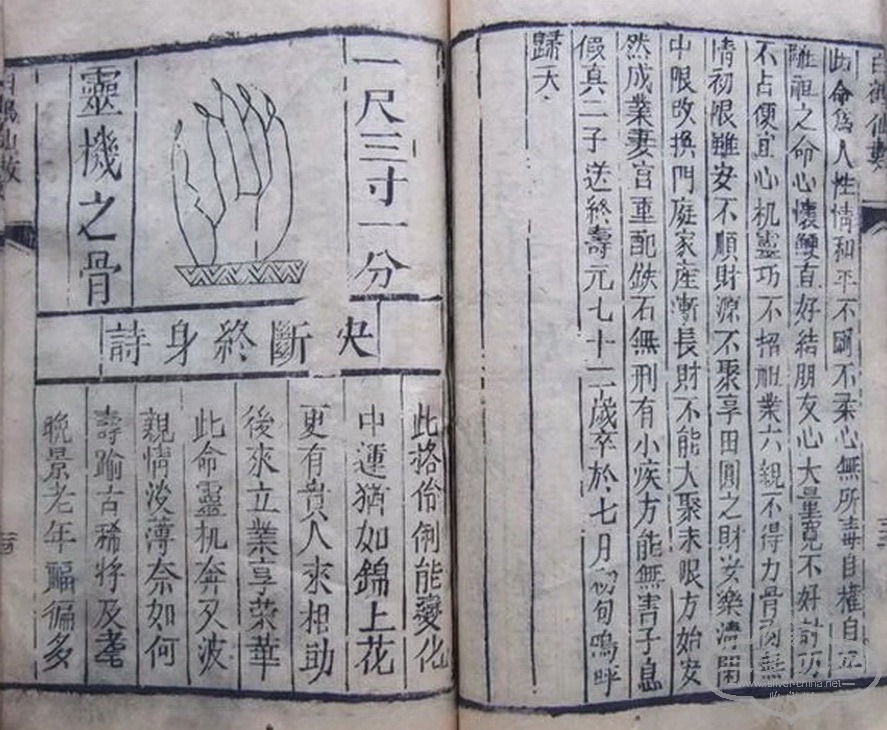 白鶴仙數
此命爲人性情和平不剛不柔心無所毒自權自
離祖之命心懷鯁直好結朋友心大量寬不好計
不占便宜心机靈巧不招祖業六親不得力骨肉無
情初限雖安不順財源不聚享田園之財安樂清閑
中限改換門庭家産漸長財不能大聚末限方始安
然成業妻宮重配鉄石無刑有小疾方能無害子息
假真二子送終壽元七十二歲卒於七月初旬嗚呼
歸天
一尺三寸一分
靈機之骨
夬斷終身詩
此格伶俐能變化
中運猶如錦上花
更有貴人來相助
後來立業享榮華
此命靈机奔歹波
親情淡薄奈如何
壽踰古稀將及耄
晚景老年福偏多
www.silver-china.net